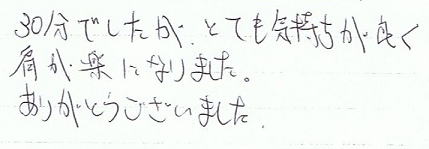 30分でしたが、とても気持ちが良く
肩が楽になりました。
ありがとうございました.